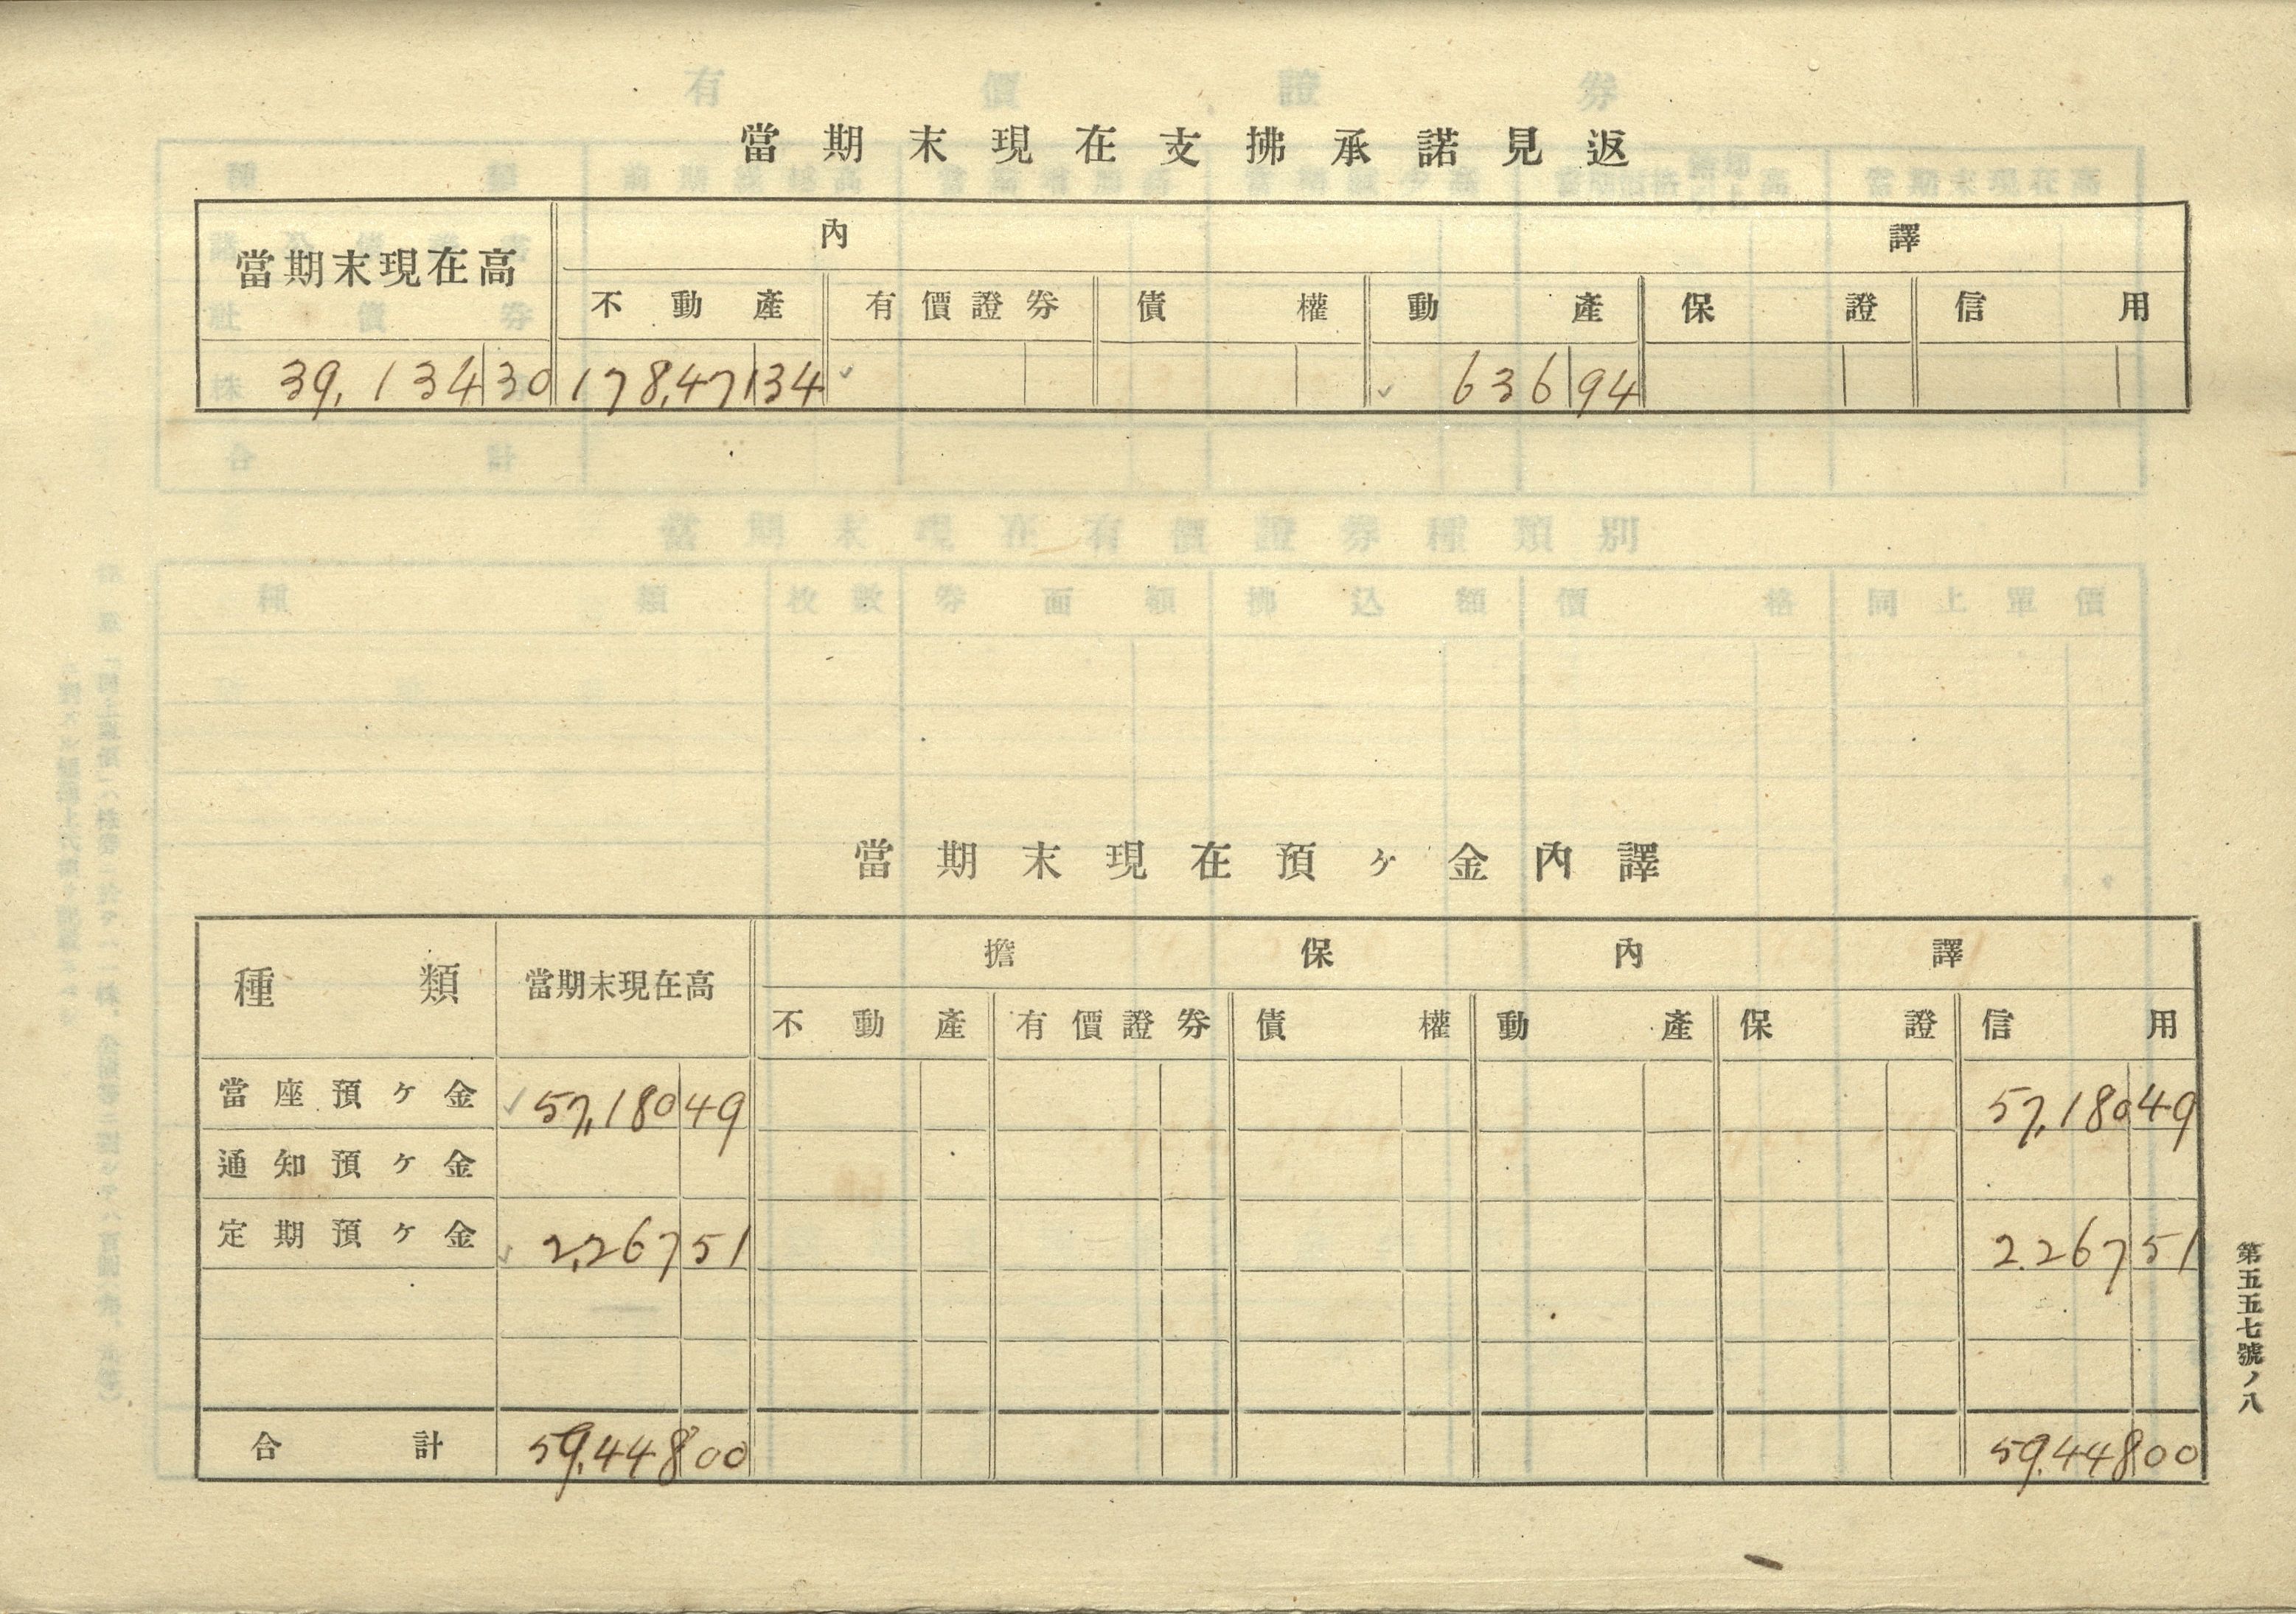 當期末現在支拂承諾見返
當期末現在高 內譯
不動產 有價證券 債權 動產 保證 信用
39,134 30 178,471 34 636 94
當期末現在預ヶ金內譯
種類 當期末現在高 擔保內譯
不動產 有價證券 債權 動產 保證 信用
當座預ヶ金 57,180 49 57,180 49
通知預ヶ金
定期預ヶ金 2,267 51 2.267 51
合計 59,448 00 59,448 00
第五五七號ノ八